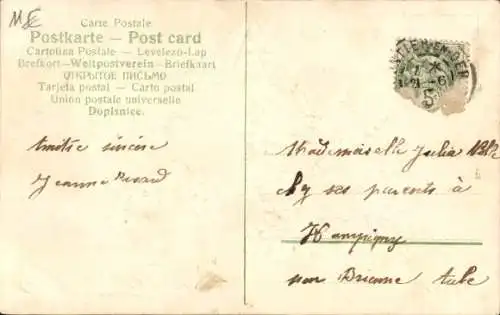 Carte Postale
Postkarte — Post card
Cartolina Postale — Levelező-Lap
Brefkort — Weltpostverein — Briefkaart
ОТКРЫТОЕ ПИСЬМО
Tarjeta postal — Carto postal
Union postale universelle
Dopisnice.
Amitié sincère
Jeanne
Mademoiselle Julia
chez ses parents à
Hampigny
par Brienne Aube